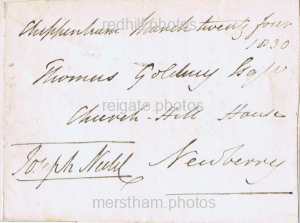 redhill.photos
Chippenham March twenty four
1830
Thomas Goldney Esqr
reigate.photos
Church-Hill House
Joseph Neeld Newberry
merstham.photos